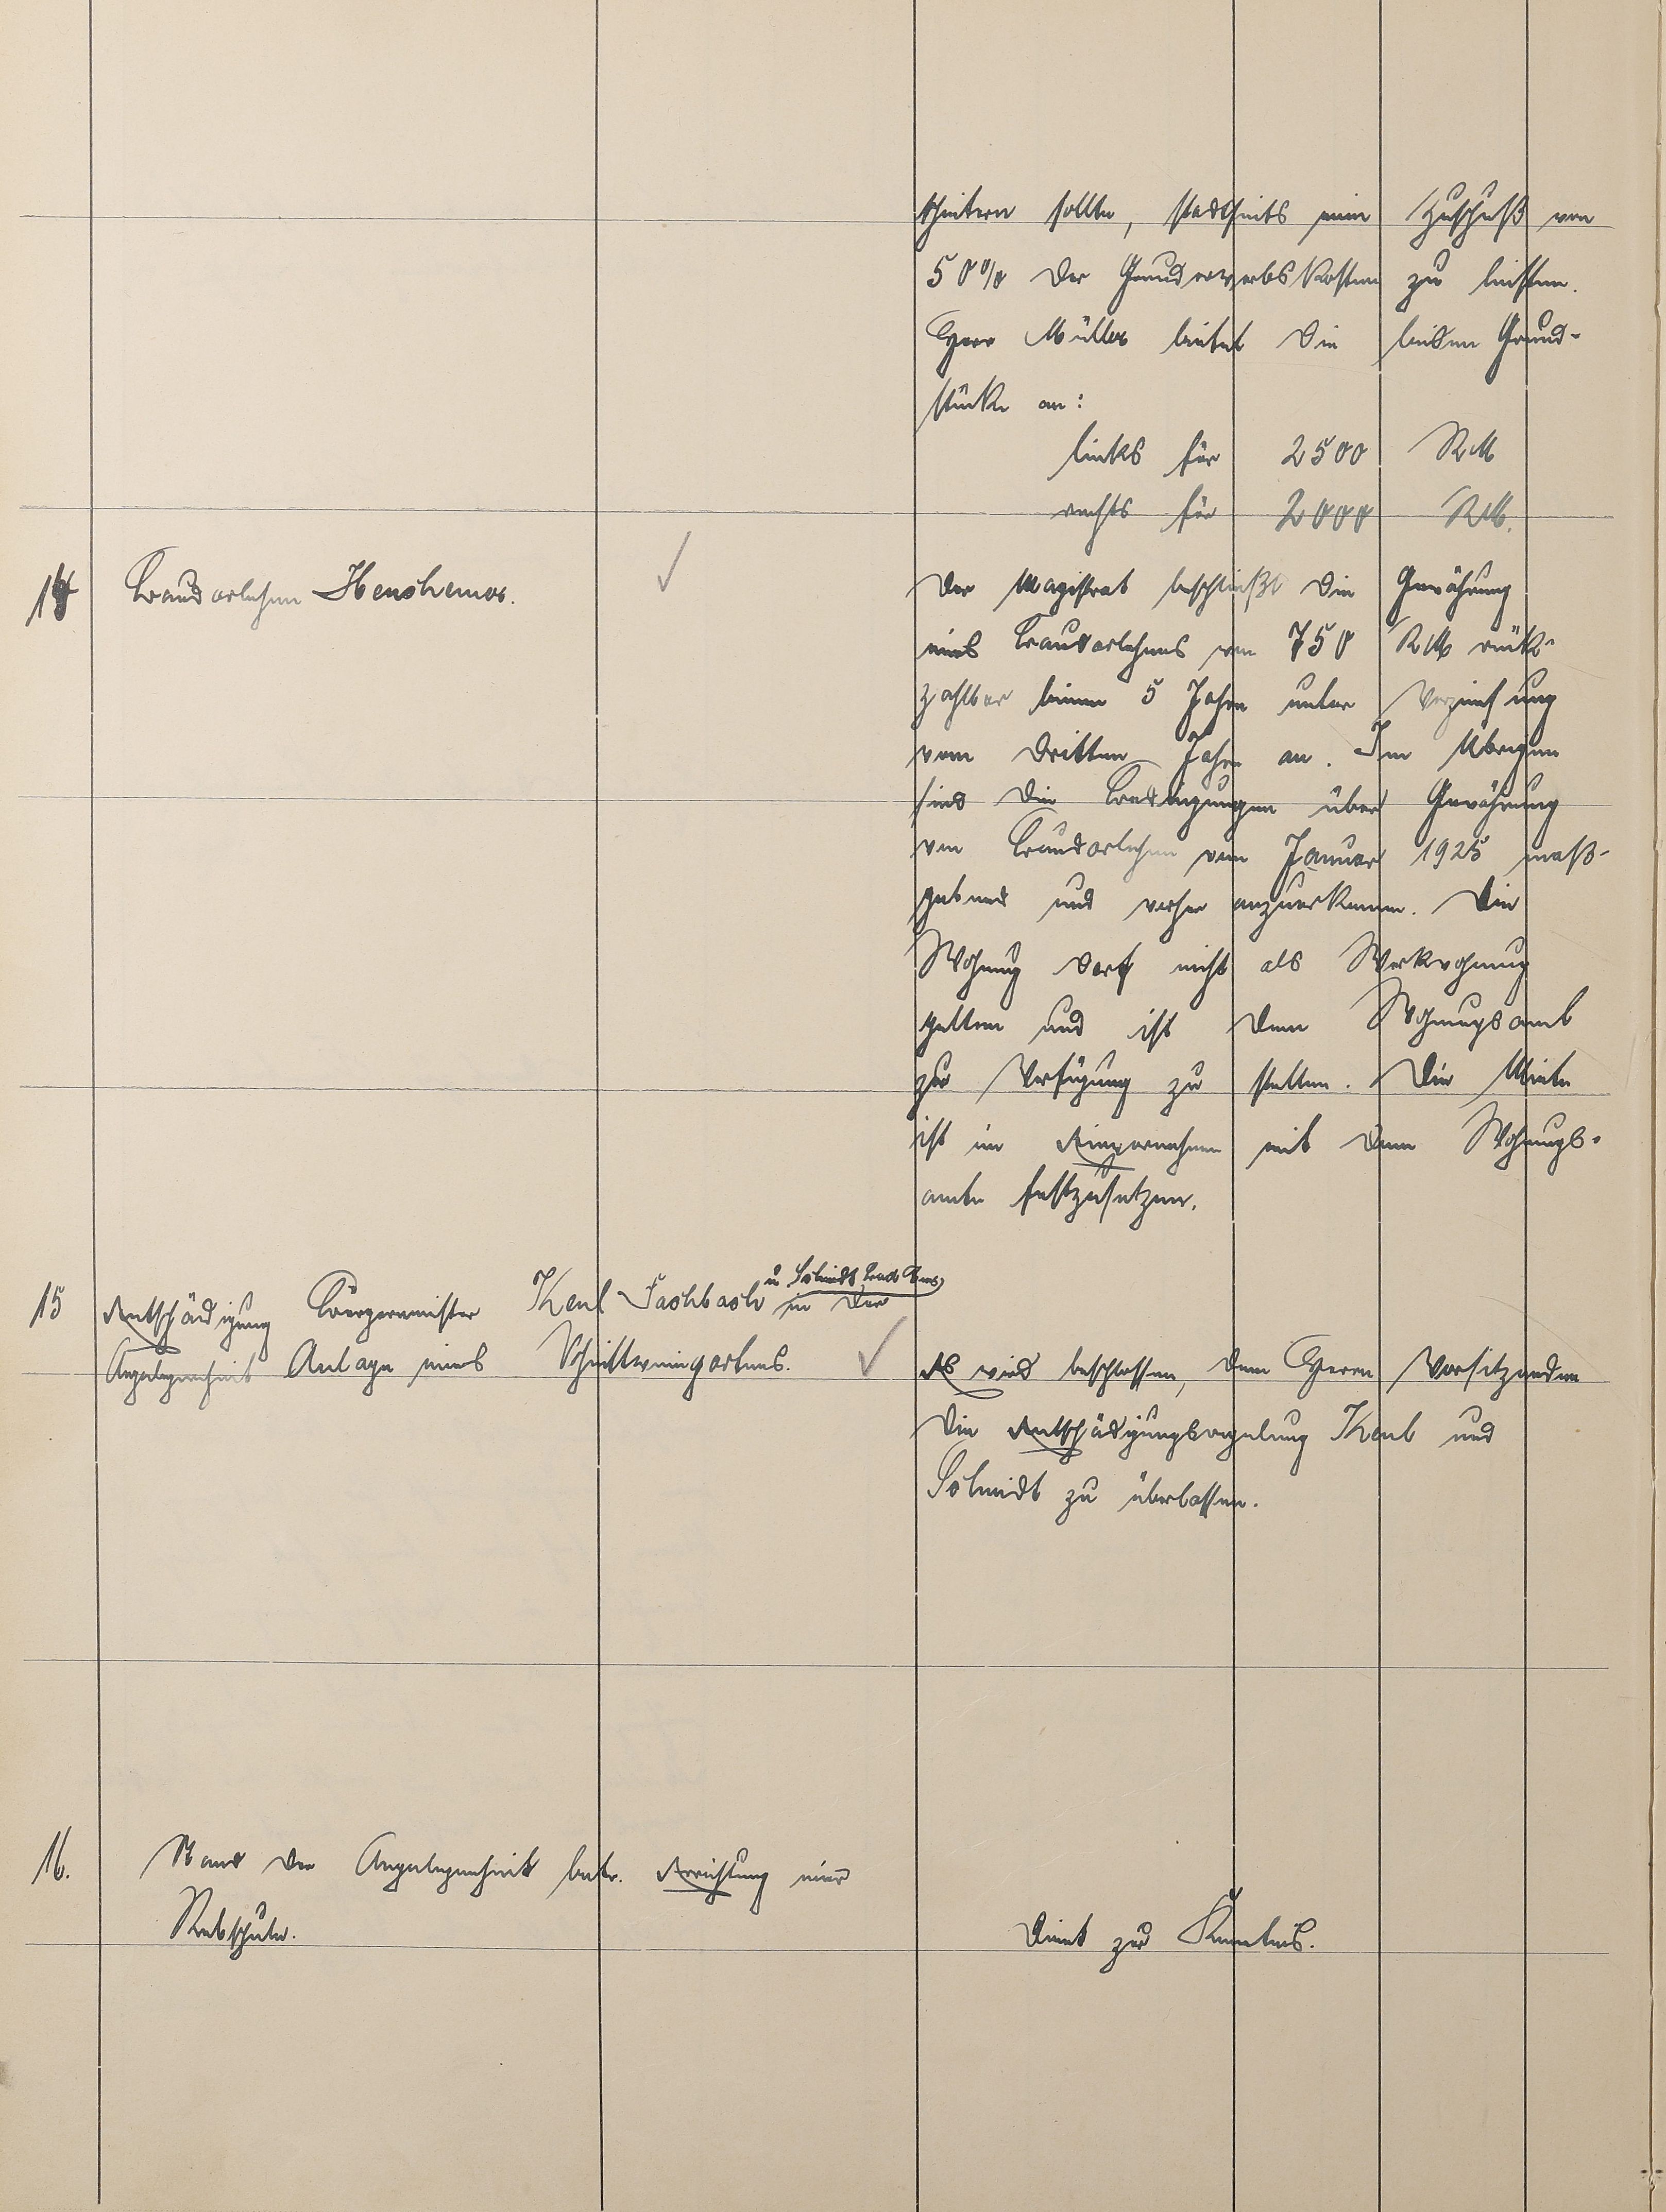 scheitern sollte, stadtseits einen Zuschuß von
50% der Grunderwerbskosten zu leisten.
Herr Müller bietet die beiden Grund-
stücke an:
links für 2500 RM
rechts für 2000 RM.
14 Baudarlehen
Der Magistrat beschließt die Gewährung
eines Baudarlehens von 750 RM rück-
zahlbar binnen 5 Jahren unter Verzinsung
vom dritten Jahre an. Im Übrigen
sind die Bedingungen über Gewährung
von Baudarlehen vom Januar 1925 maß-
gebend und vorher anzuerkennen. Die
Wohnung darf nicht als Werkwohnung
gelten und ist dem Wohnungsamt
zur Verfügung zu stellen. Die Miete
ist im Einvernehmen mit dem Wohnungs-
amte festzusetzen.
15 Entschädigung Bürgermeister Kaul Fachbach u Schmidt Bad Ems in der
Angelegenheit Anlage eines Schnittweingartens.
Es wird beschlossen, dem Herrn Vorsitzenden
die Entschädigungsregelung Kaul und
Schmidt zu überlassen.
16. Stand der Angelegenheit betr. Errichtung einer
Rebschule.
Dient zur Kenntnis.